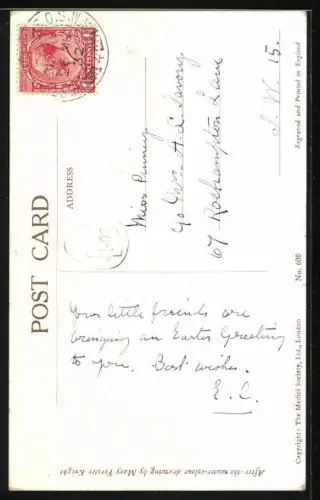 POST CARD
ADDRESS
Miss Penning
c/o Mrs. A. L.
67 Roehampton Lane
S. W. 15.
Your little friends are
bringing an Easter Greeting
to you. Best wishes.
E. C.
After the water-colour drawing by Mary Forster Knight
Copyright: The Medici Society, Ltd., London
No. 600
Engraved and Printed in England